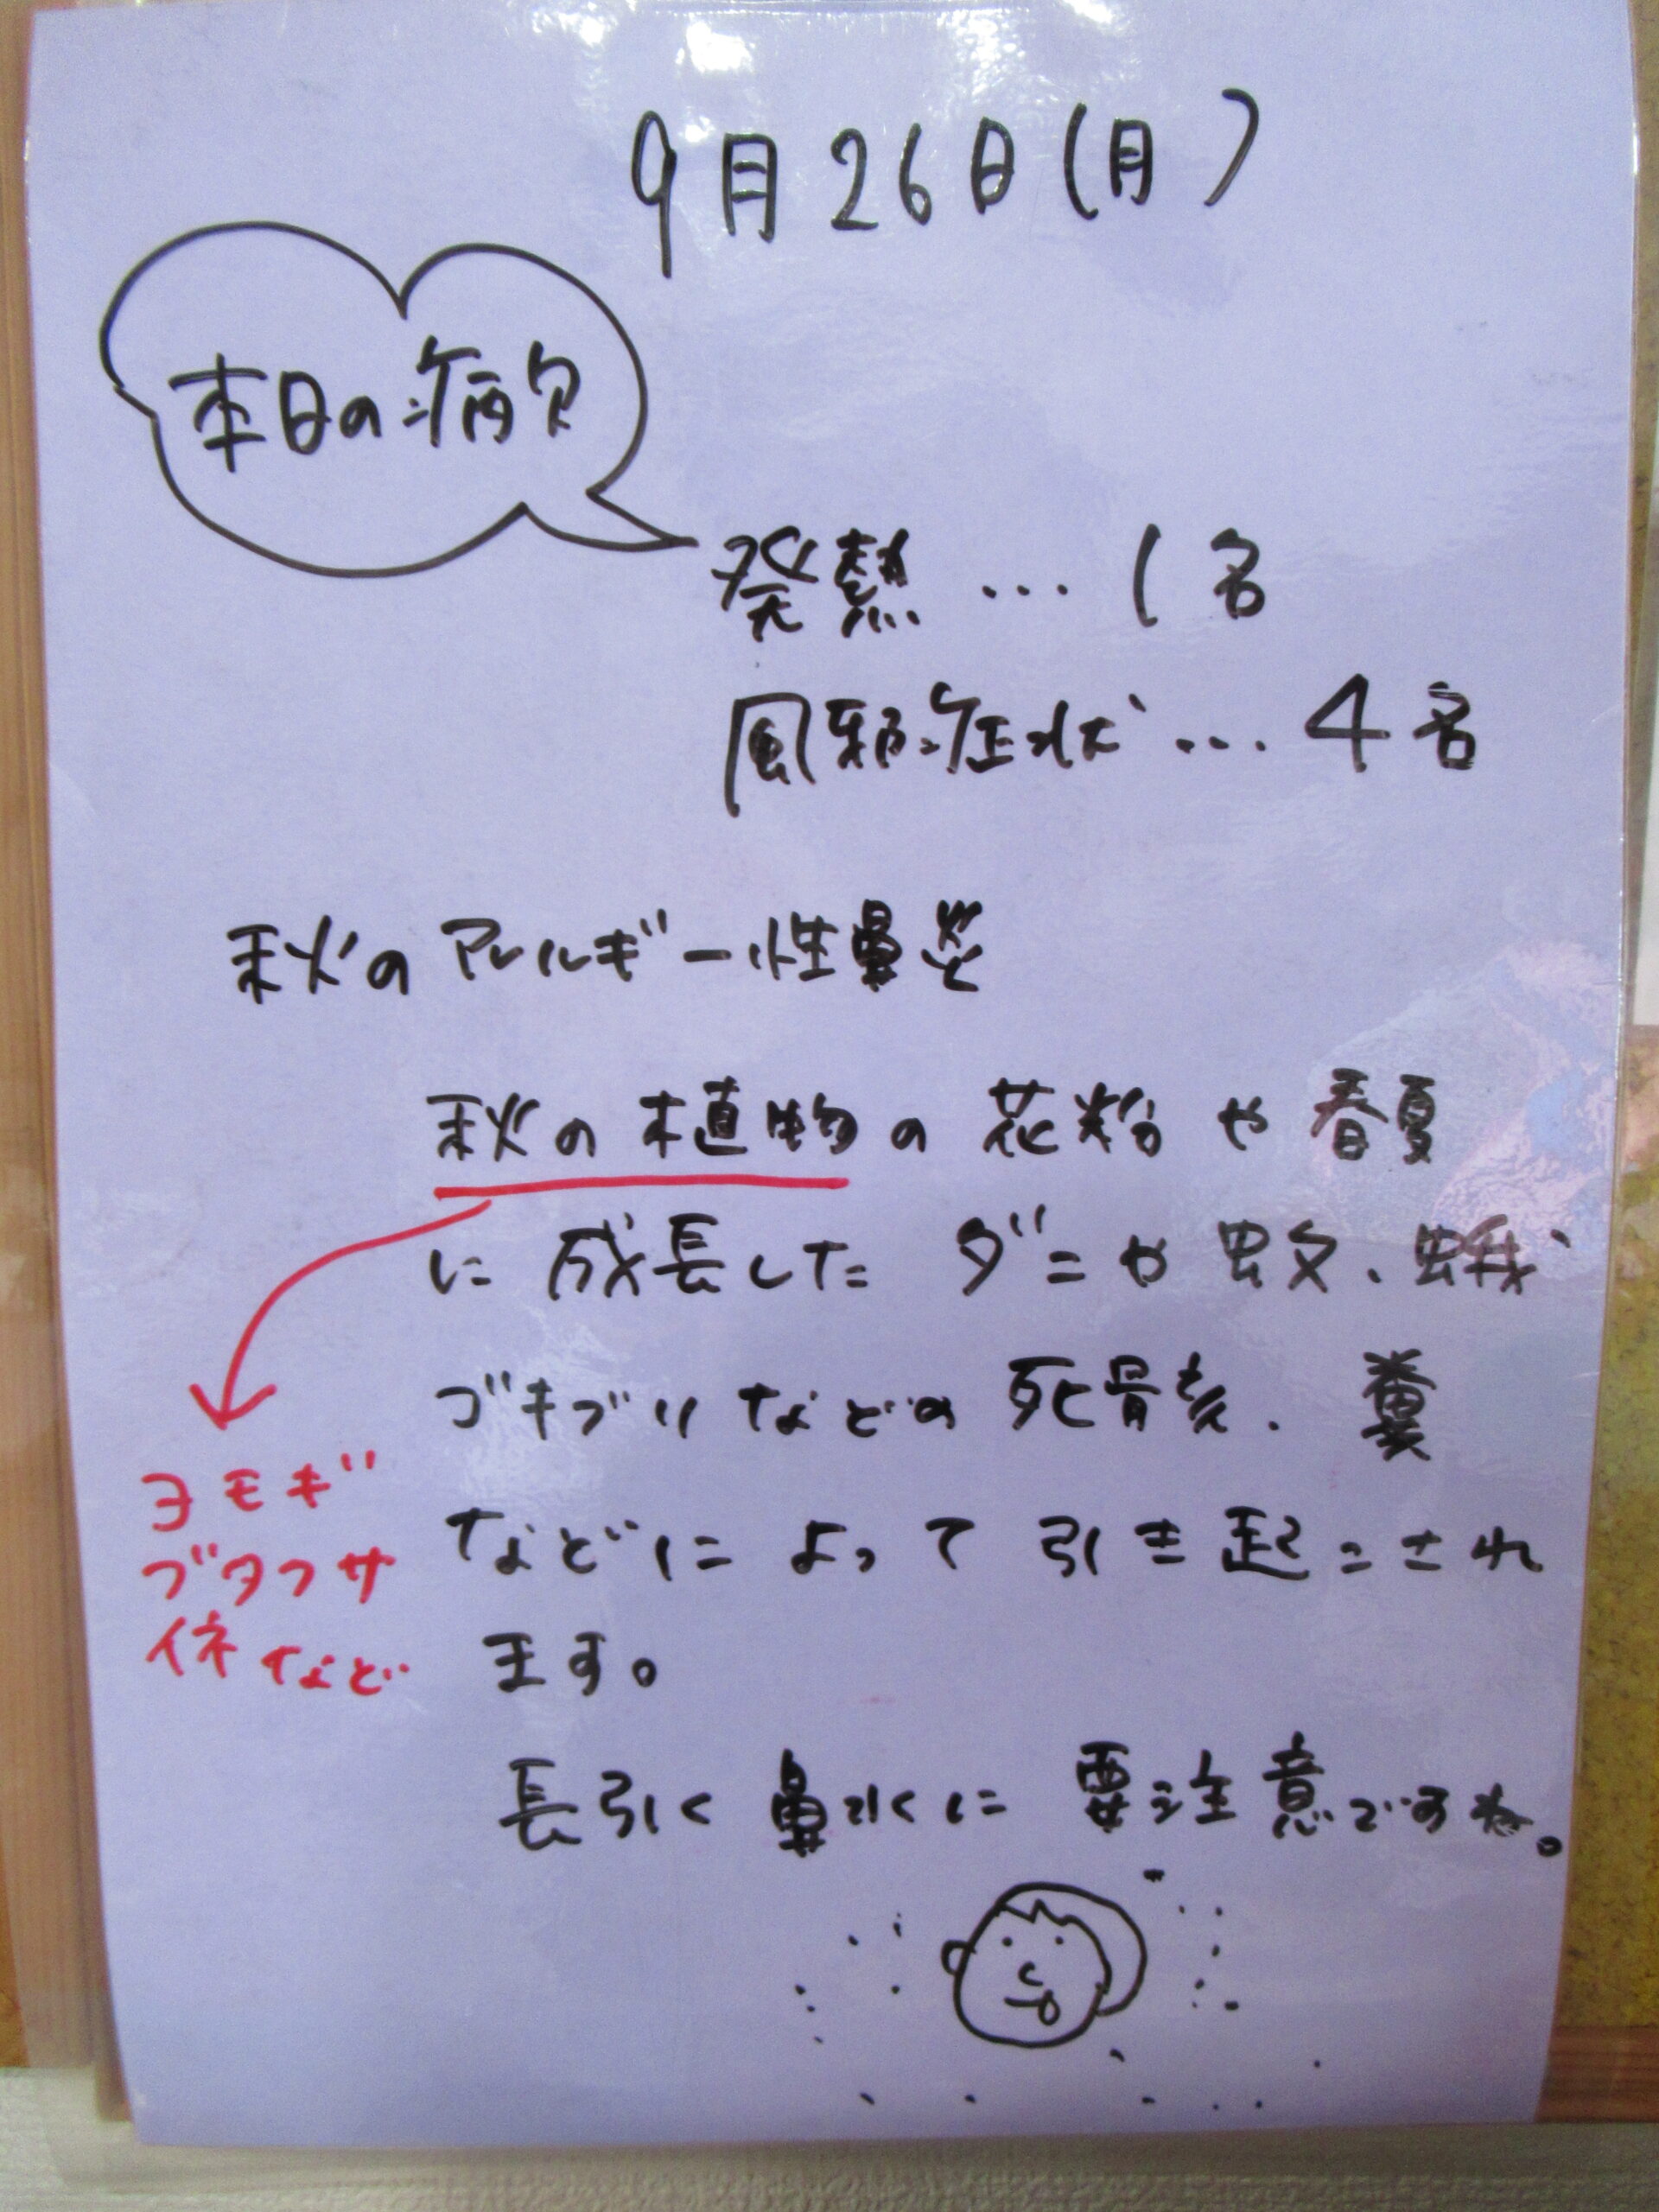 9月26日(月)
本日の病欠
発熱…1名
風邪症状…4名
秋のアレルギー性鼻炎
秋の植物の花粉や春夏
に成長したダニや蚊、蛾
ゴキブリなどの死骸、糞
などによって引き起こされ
ます。
ヨモギ
ブタクサ
イネなど
長引く鼻水に要注意ですね。